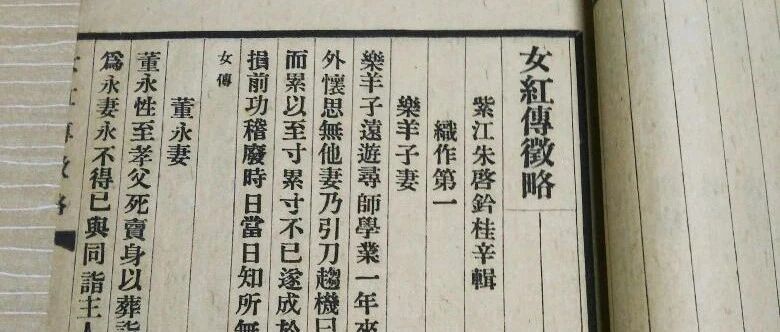 女紅傳徵略
紫江朱啓鈐桂辛輯
織作第一
樂羊子妻
樂羊子遠遊尋師學業一年來
外懷思無他妻乃引刀趨機曰
而累以至寸累寸不已遂成於
損前功稽廢時日當日知所無
女傳
董永妻
董永性至孝父死賣身以葬詣
爲永妻永不得已與同詣主人
女紅傳徵略